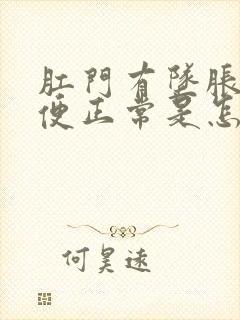 肛門有墜脹
便正常是怎
何昊遠